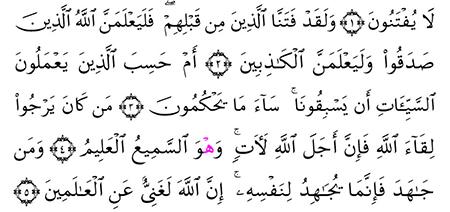 لَا يُفْتَنُونَ ﴿١﴾ وَلَقَدْ فَتَنَّا ٱلَّذِينَ مِن قَبْلِهِمْۖ فَلَيَعْلَمَنَّ ٱللَّهُ ٱلَّذِينَ
صَدَقُوا۟ وَلَيَعْلَمَنَّ ٱلْكَـٰذِبِينَ ﴿٢﴾ أَمْ حَسِبَ ٱلَّذِينَ يَعْمَلُونَ
ٱلسَّيِّـَٔاتِ أَن يَسْبِقُونَاۚ سَآءَ مَا يَحْكُمُونَ ﴿٣﴾ مَن كَانَ يَرْجُوا۟
لِقَآءَ ٱللَّهِ فَإِنَّ أَجَلَ ٱللَّهِ لَأٓتٍۚ وَهْوَ ٱلسَّمِيعُ ٱلْعَلِيمُ ﴿٤﴾ وَمَن
جَـٰهَدَ فَإِنَّمَا يُجَـٰهِدُ لِنَفْسِهِۦٓۚ إِنَّ ٱللَّهَ لَغَنِىٌّ عَنِ ٱلْعَـٰلَمِينَ ﴿٥﴾